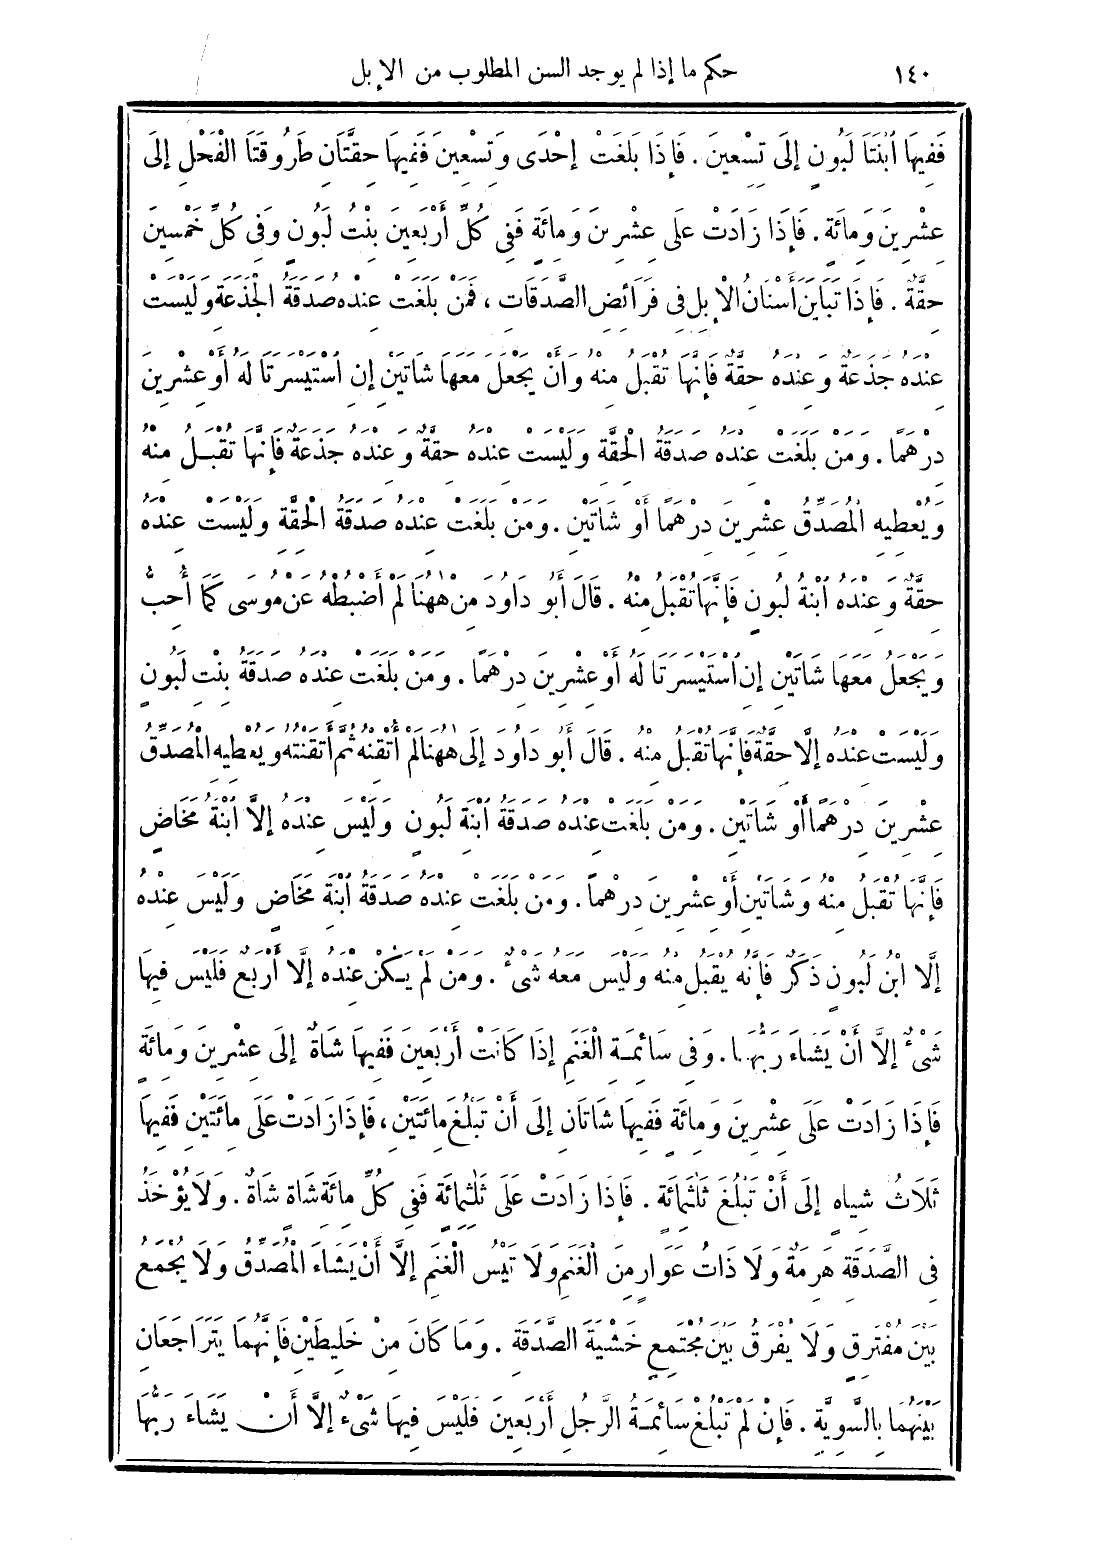 ١٤٠ حكم ما إذا لم يوجد السن المطلوب من الإبل
فَفِيهَا ابْنَتَا لَبُونٍ إِلَى تِسْعِينَ . فَإِذَا بَلَغَتْ إِحْدَى وَتِسْعِينَ فَفِيهَا حِقَّتَانِ طَرُوقَتَا الْفَحْلِ إِلَى
عِشْرِينَ وَمِائَةٍ . فَإِذَا زَادَتْ عَلَى عِشْرِينَ وَمِائَةٍ فَفِى كُلِّ أَرْبَعِينَ بِنْتُ لَبُونٍ وَفِى كُلِّ خَمْسِينَ
حِقَّةٌ . فَإِذَا تَبَايَنَ أَسْنَانُ الْإِبِلِ فِى فَرَائِضِ الصَّدَقَاتِ ، فَمَنْ بَلَغَتْ عِنْدَهُ صَدَقَةُ الْجَذَعَةِ وَلَيْسَتْ
عِنْدَهُ جَذَعَةٌ وَعِنْدَهُ حِقَّةٌ فَإِنَّهَا تُقْبَلُ مِنْهُ وَأَنْ يَجْعَلَ مَعَهَا شَاتَيْنِ إِنِ اسْتَيْسَرَتَا لَهُ أَوْ عِشْرِينَ
دِرْهَمًا . وَمَنْ بَلَغَتْ عِنْدَهُ صَدَقَةُ الْحِقَّةِ وَلَيْسَتْ عِنْدَهُ حِقَّةٌ وَعِنْدَهُ جَذَعَةٌ فَإِنَّهَا تُقْبَلُ مِنْهُ
وَيُعْطِيهِ الْمُصَدِّقُ عِشْرِينَ دِرْهَمًا أَوْ شَاتَيْنِ . وَمَنْ بَلَغَتْ عِنْدَهُ صَدَقَةُ الْحِقَّةِ وَلَيْسَتْ عِنْدَهُ
حِقَّةٌ وَعِنْدَهُ ابْنَةُ لَبُونٍ فَإِنَّهَا تُقْبَلُ مِنْهُ . قَالَ أَبُو دَاوُدَ مِنْ هٰهُنَا لَمْ أَضْبِطْهُ عَنْ مُوسَى كَمَا أُحِبُّ
وَيَجْعَلُ مَعَهَا شَاتَيْنِ إِنِ اسْتَيْسَرَتَا لَهُ أَوْ عِشْرِينَ دِرْهَمًا . وَمَنْ بَلَغَتْ عِنْدَهُ صَدَقَةُ بِنْتِ لَبُونٍ
وَلَيْسَتْ عِنْدَهُ إِلَّا حِقَّةٌ فَإِنَّهَا تُقْبَلُ مِنْهُ . قَالَ أَبُو دَاوُدَ إِلَى هٰهُنَا لَمْ أُتْقِنْهُ ثُمَّ أَتْقَنْتُهُ وَيُعْطِيهِ الْمُصَدِّقُ
عِشْرِينَ دِرْهَمًا أَوْ شَاتَيْنِ . وَمَنْ بَلَغَتْ عِنْدَهُ صَدَقَةُ ابْنَةِ لَبُونٍ وَلَيْسَ عِنْدَهُ إِلَّا ابْنَةُ مَخَاضٍ
فَإِنَّهَا تُقْبَلُ مِنْهُ وَشَاتَيْنِ أَوْ عِشْرِينَ دِرْهَمًا . وَمَنْ بَلَغَتْ عِنْدَهُ صَدَقَةُ ابْنَةِ مَخَاضٍ وَلَيْسَ عِنْدَهُ
إِلَّا ابْنُ لَبُونٍ ذَكَرٌ فَإِنَّهُ يُقْبَلُ مِنْهُ وَلَيْسَ مَعَهُ شَىْءٌ . وَمَنْ لَمْ يَكُنْ عِنْدَهُ إِلَّا أَرْبَعٌ فَلَيْسَ فِيهَا
شَىْءٌ إِلَّا أَنْ يَشَاءَ رَبُّهَا . وَفِى سَائِمَةِ الْغَنَمِ إِذَا كَانَتْ أَرْبَعِينَ فَفِيهَا شَاةٌ إِلَى عِشْرِينَ وَمِائَةٍ
فَإِذَا زَادَتْ عَلَى عِشْرِينَ وَمِائَةٍ فَفِيهَا شَاتَانِ إِلَى أَنْ تَبْلُغَ مِائَتَيْنِ ، فَإِذَا زَادَتْ عَلَى مِائَتَيْنِ فَفِيهَا
ثَلَاثُ شِيَاهٍ إِلَى أَنْ تَبْلُغَ ثَلٰثَمِائَةٍ . فَإِذَا زَادَتْ عَلَى ثَلٰثِمِائَةٍ فَفِى كُلِّ مِائَةِ شَاةٍ شَاةٌ . وَلَا يُؤْخَذُ
فِى الصَّدَقَةِ هَرِمَةٌ وَلَا ذَاتُ عَوَارٍ مِنَ الْغَنَمِ وَلَا تَيْسُ الْغَنَمِ إِلَّا أَنْ يَشَاءَ الْمُصَدِّقُ وَلَا يُجْمَعُ
بَيْنَ مُفْتَرِقٍ وَلَا يُفْرَقُ بَيْنَ مُجْتَمِعٍ خَشْيَةَ الصَّدَقَةِ . وَمَا كَانَ مِنْ خَلِيطَيْنِ فَإِنَّهُمَا يَتَرَاجَعَانِ
بَيْنَهُمَا بِالسَّوِيَّةِ . فَإِنْ لَمْ تَبْلُغْ سَائِمَةُ الرَّجُلِ أَرْبَعِينَ فَلَيْسَ فِيهَا شَىْءٌ إِلَّا أَنْ يَشَاءَ رَبُّهَا